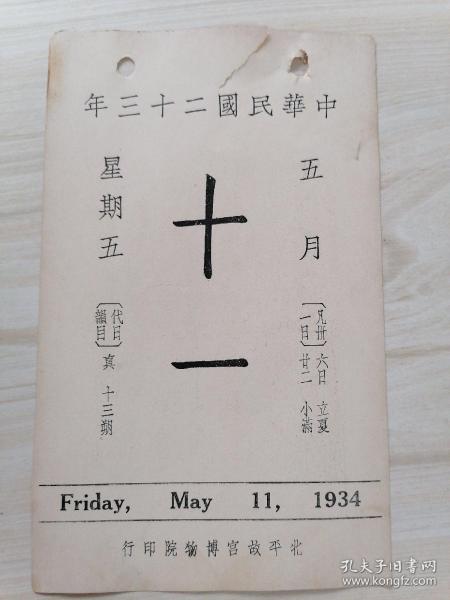 中華民國二十三年
五月
〔凡卅一日〕
六日 立夏
廿二 小滿
十一
星期五
〔代日韻目〕
真 十三朔
Friday, May 11, 1934
北平故宮博物院印行
孔夫子旧书网
www.kongfz.com